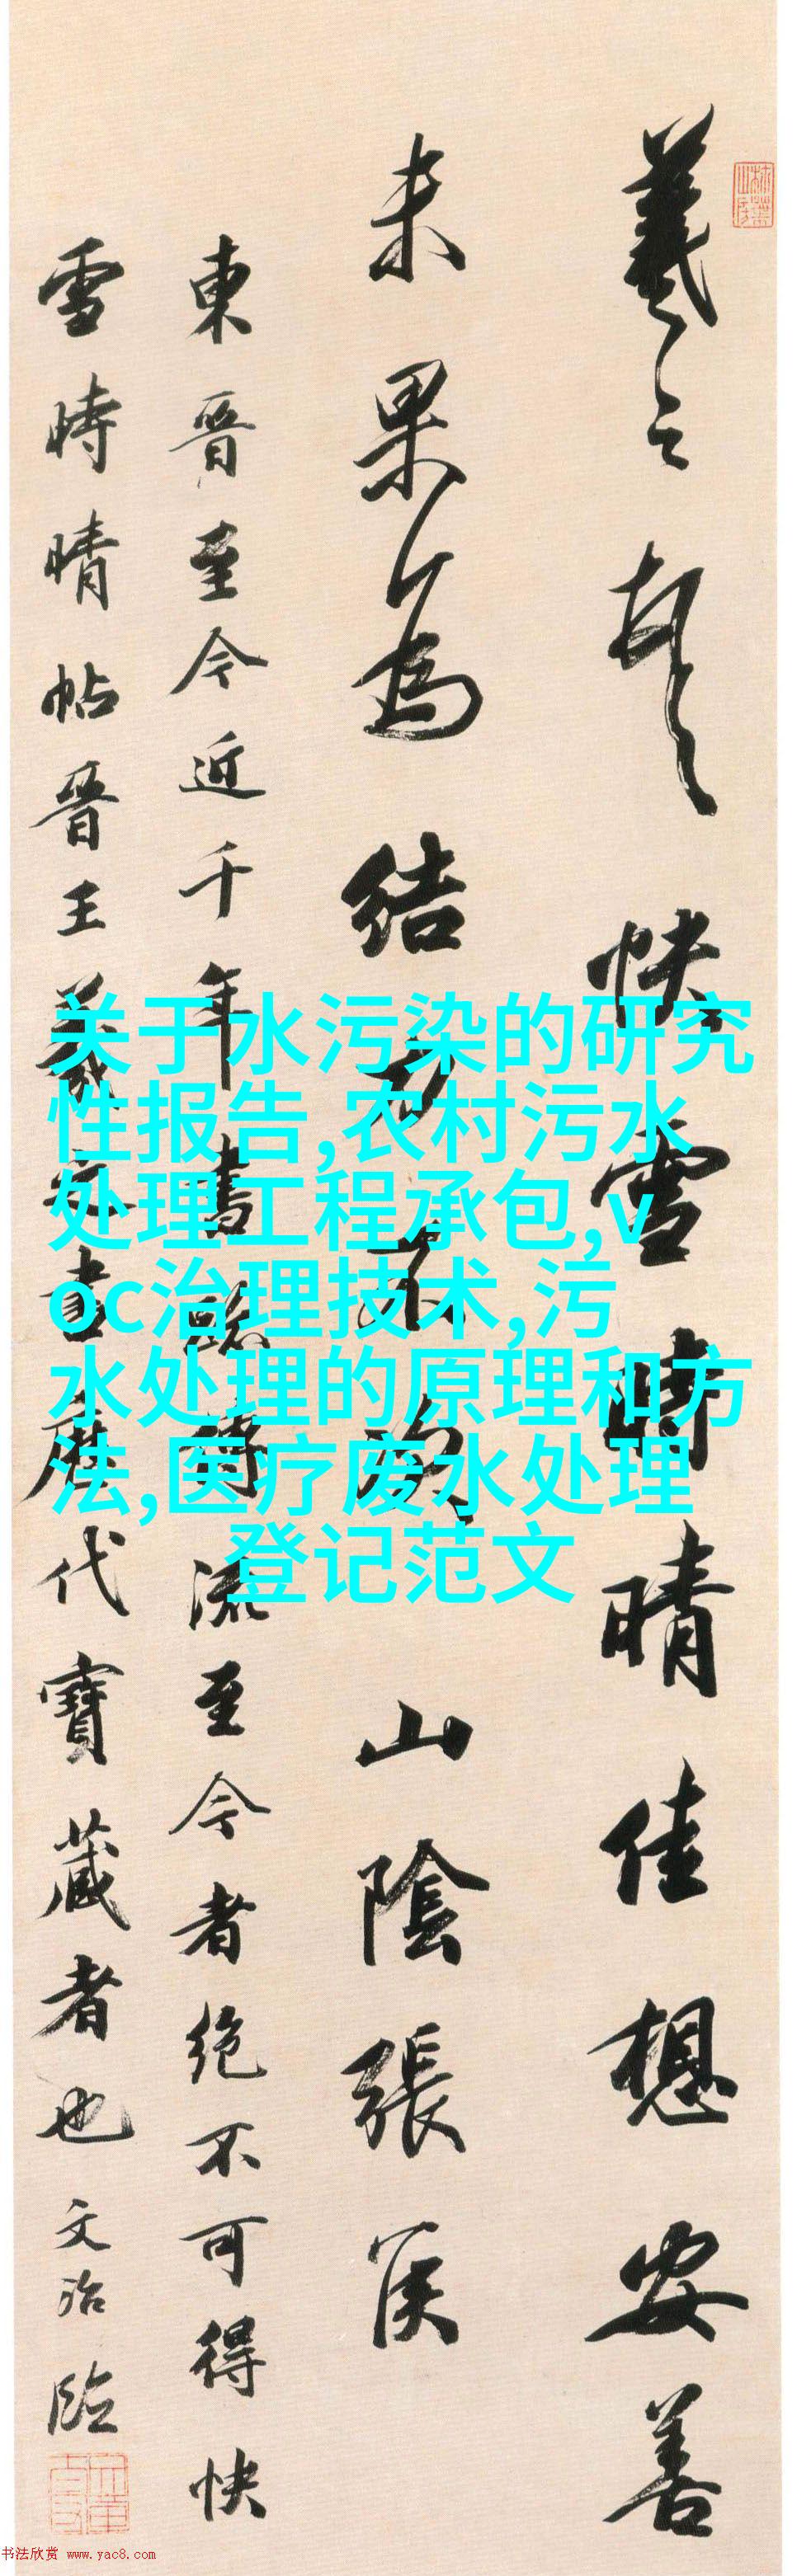 羲之頓首快雪時晴佳想安善
未果為結力不次山陰張侯
東晉至今近千年書跡傳流至今者絕不可得快
雪時晴帖晉王羲之書歷代寶藏者也文治臨
关于水污染的研究
性报告,农村污水
处理工程承包,v
oc治理技术,污
水处理的原理和方
法,医疗废水处理
登记范文
书法欣赏 www.yac8.com